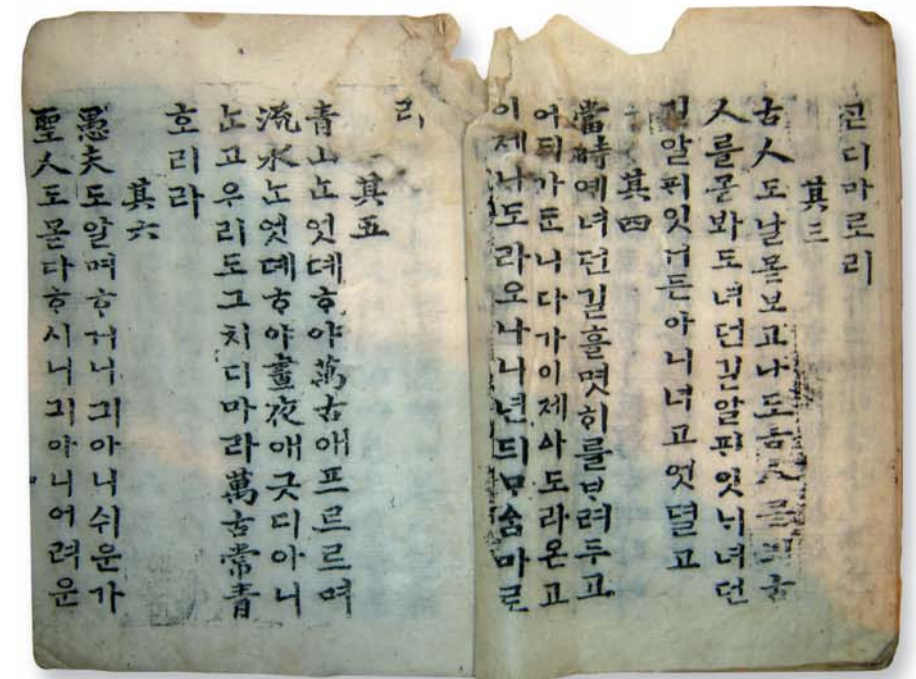 곧디마로리
其三
古人도날몯보고나도古人몯뵈古
人를몯봐도녀던길알ᄑᆡ잇ᄂᆡ녀던
길알ᄑᆡ잇거든아니녀고엇덜고
其四
當時예녀던길흘몃ᄒᆡ를ᄇᆞ려두고
어듸가ᄃᆞᆫ니다가이제ᅀᅡ도라온고
이제나도라오나니년듸ᄆᆞᅀᆞᆷ마로
리
其五
青山ᄂᆞᆫ엇뎨ᄒᆞ야萬古애프르르며
流水ᄂᆞᆫ엇뎨ᄒᆞ야晝夜애긋디아니
ᄂᆞᆫ고우리도그치디마라萬古常青
호리라
其六
愚夫도알며ᄒᆞ거니긔아니쉬운가
聖人도몯다ᄒᆞ시니긔아니어려운